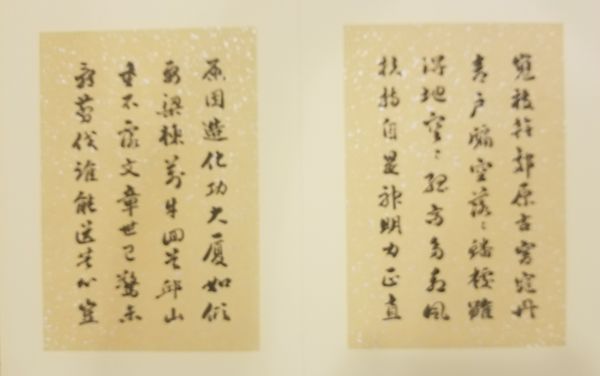 嵬枝幹郊原古窈窕丹
青戶牖空落〻蟠據雖
得地冥〻孤高多烈風
扶持自是神明力正直
原因造化功大廈如傾
要梁棟萬牛回首邱山
重不露文章世已驚未
辭剪伐誰能送苦心豈